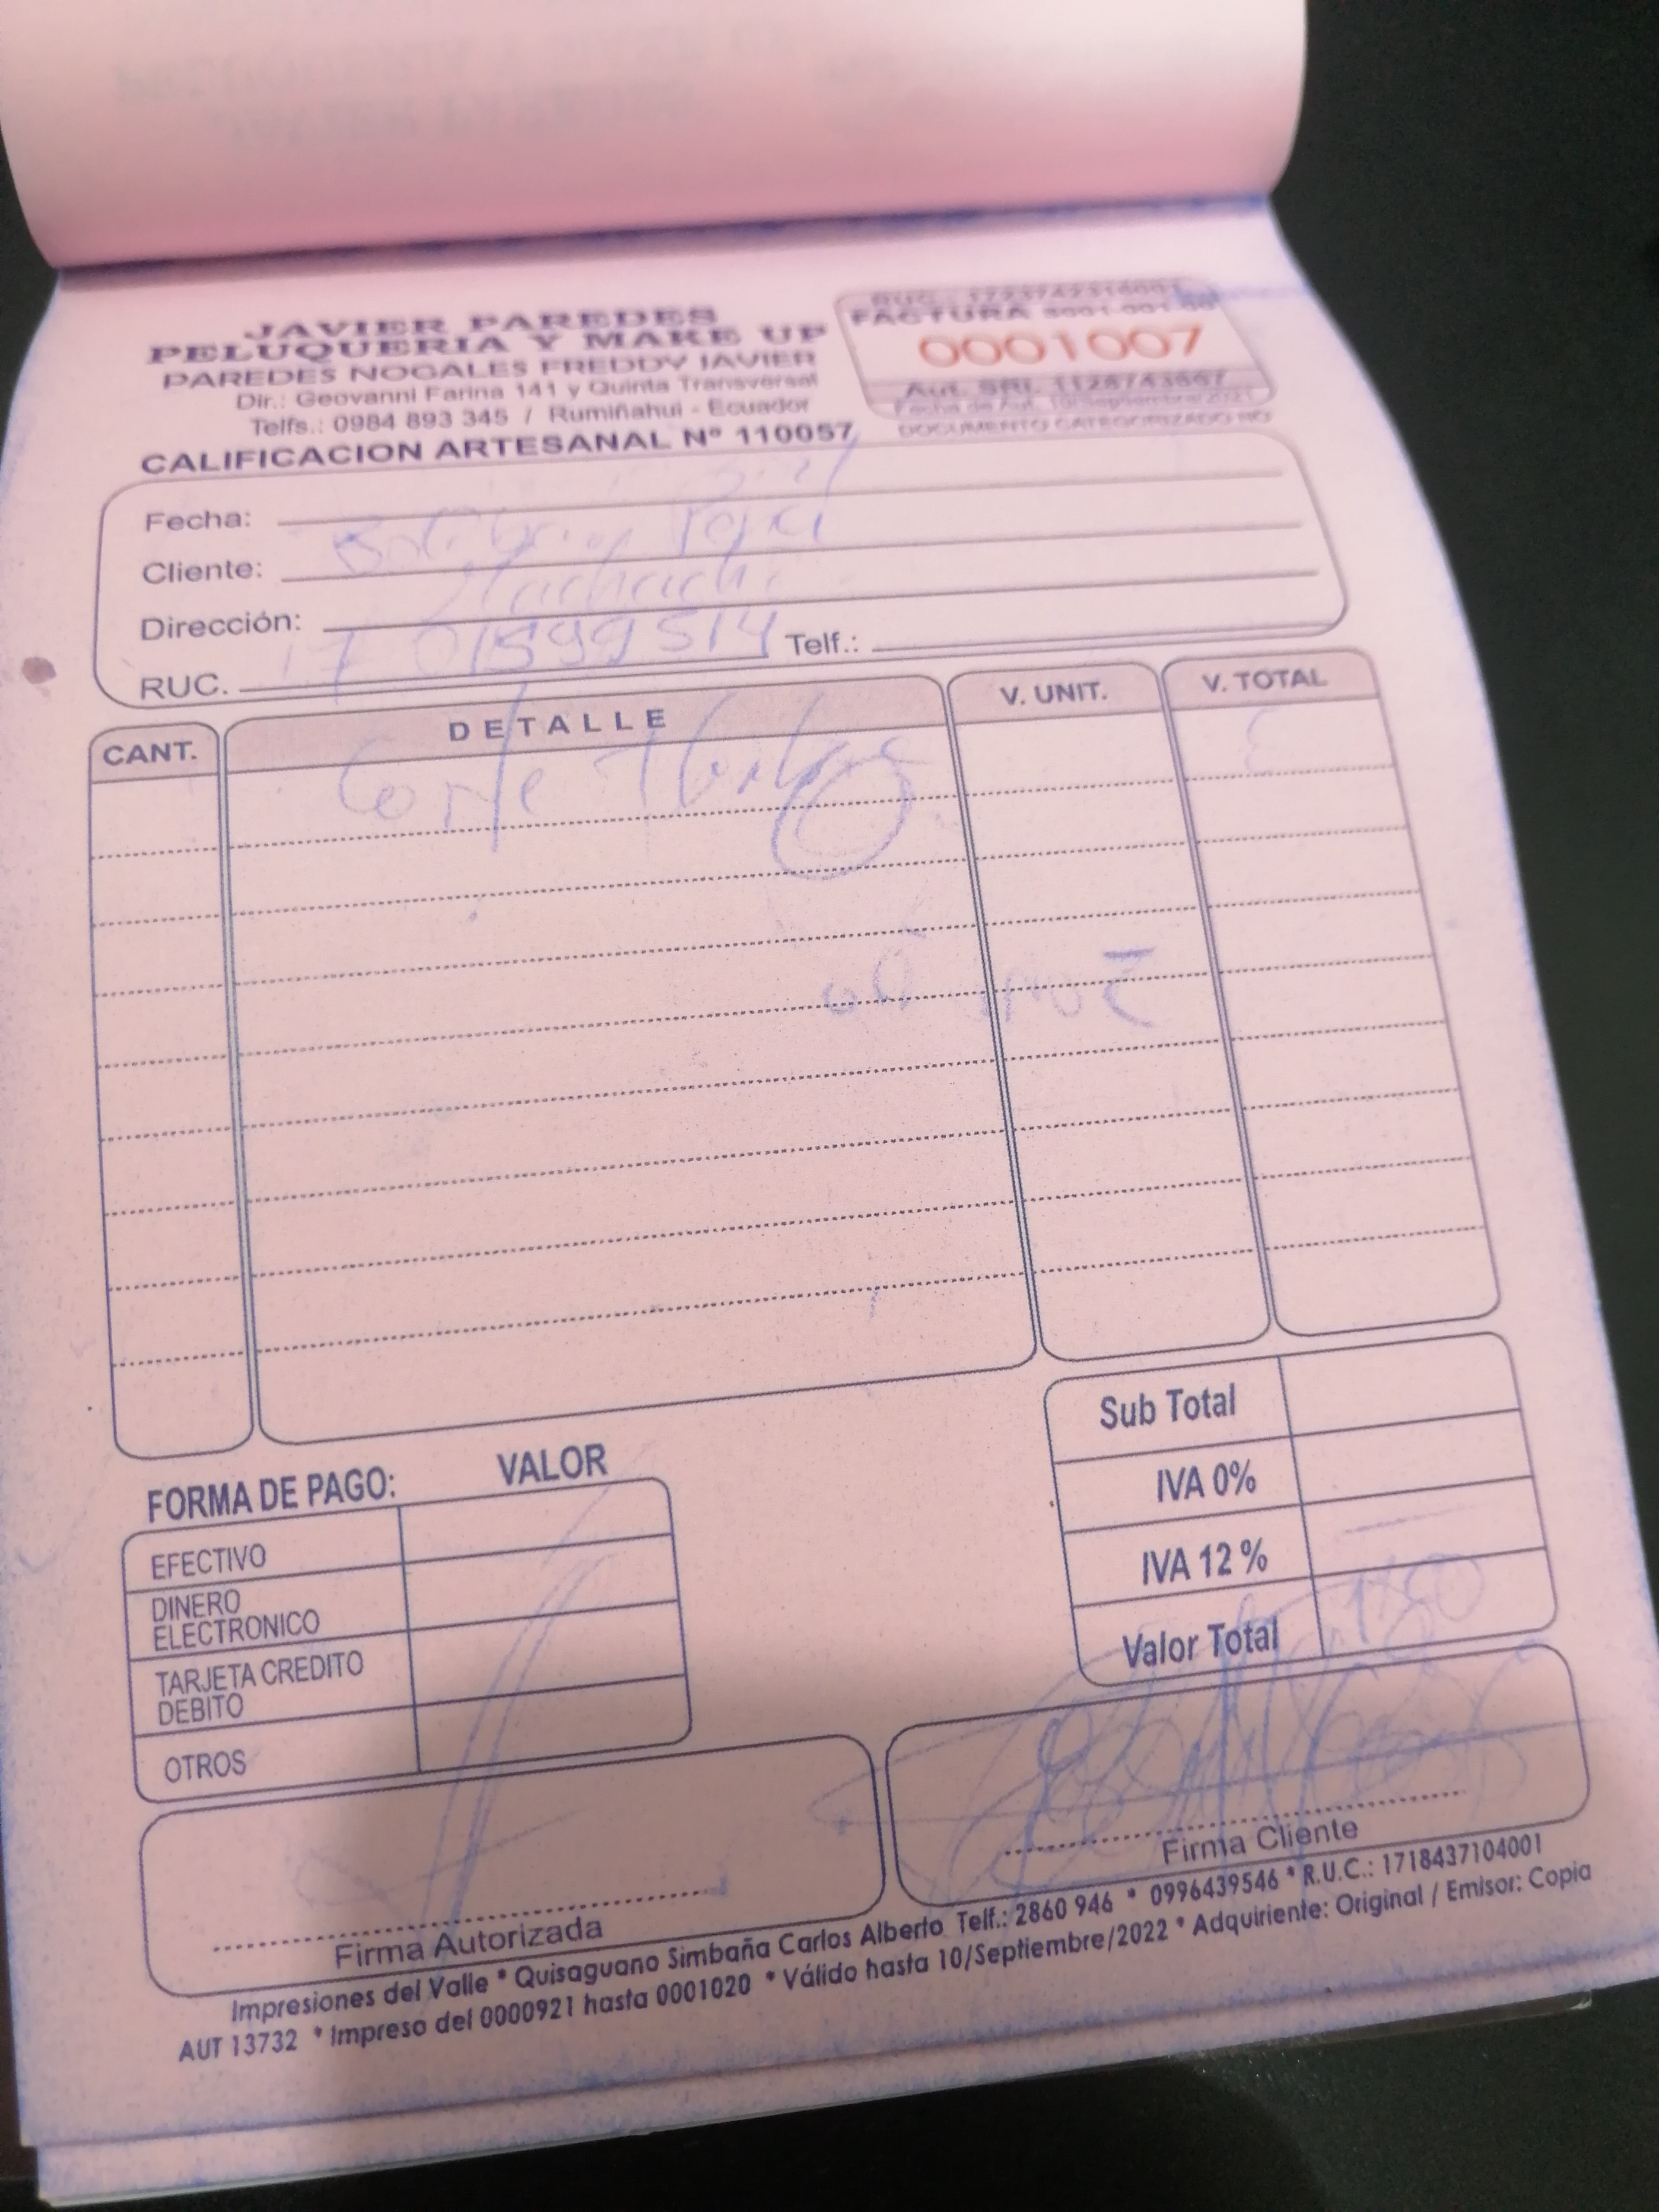 JAVIER PAREDES
PELUQUERIA Y MAKE UP
PAREDES NOGALES FREDDY JAVIER
Dir.: Geovanni Farina 141 y Quinta Transversal
Telfs.: 0984 893 345 / Rumiñahui - Ecuador
CALIFICACION ARTESANAL Nº 110057
FACTURA
0001007
Aut. SRI.
DOCUMENTO CATEGORIZADO NO
Fecha:
Cliente:
Dirección: Machachi
RUC. Telf.:
CANT. DETALLE V. UNIT. V. TOTAL
Corte
Sub Total
IVA 0%
IVA 12 %
Valor Total
FORMA DE PAGO: VALOR
EFECTIVO
DINERO ELECTRONICO
TARJETA CREDITO DEBITO
OTROS
Firma Autorizada
Firma Cliente
Impresiones del Valle * Quisaguano Simbaña Carlos Alberto Telf.: 2860 946 * 0996439546 * R.U.C.: 1718437104001
AUT 13732 * Impreso del 0000921 hasta 0001020 * Válido hasta 10/Septiembre/2022 * Adquiriente: Original / Emisor: Copia